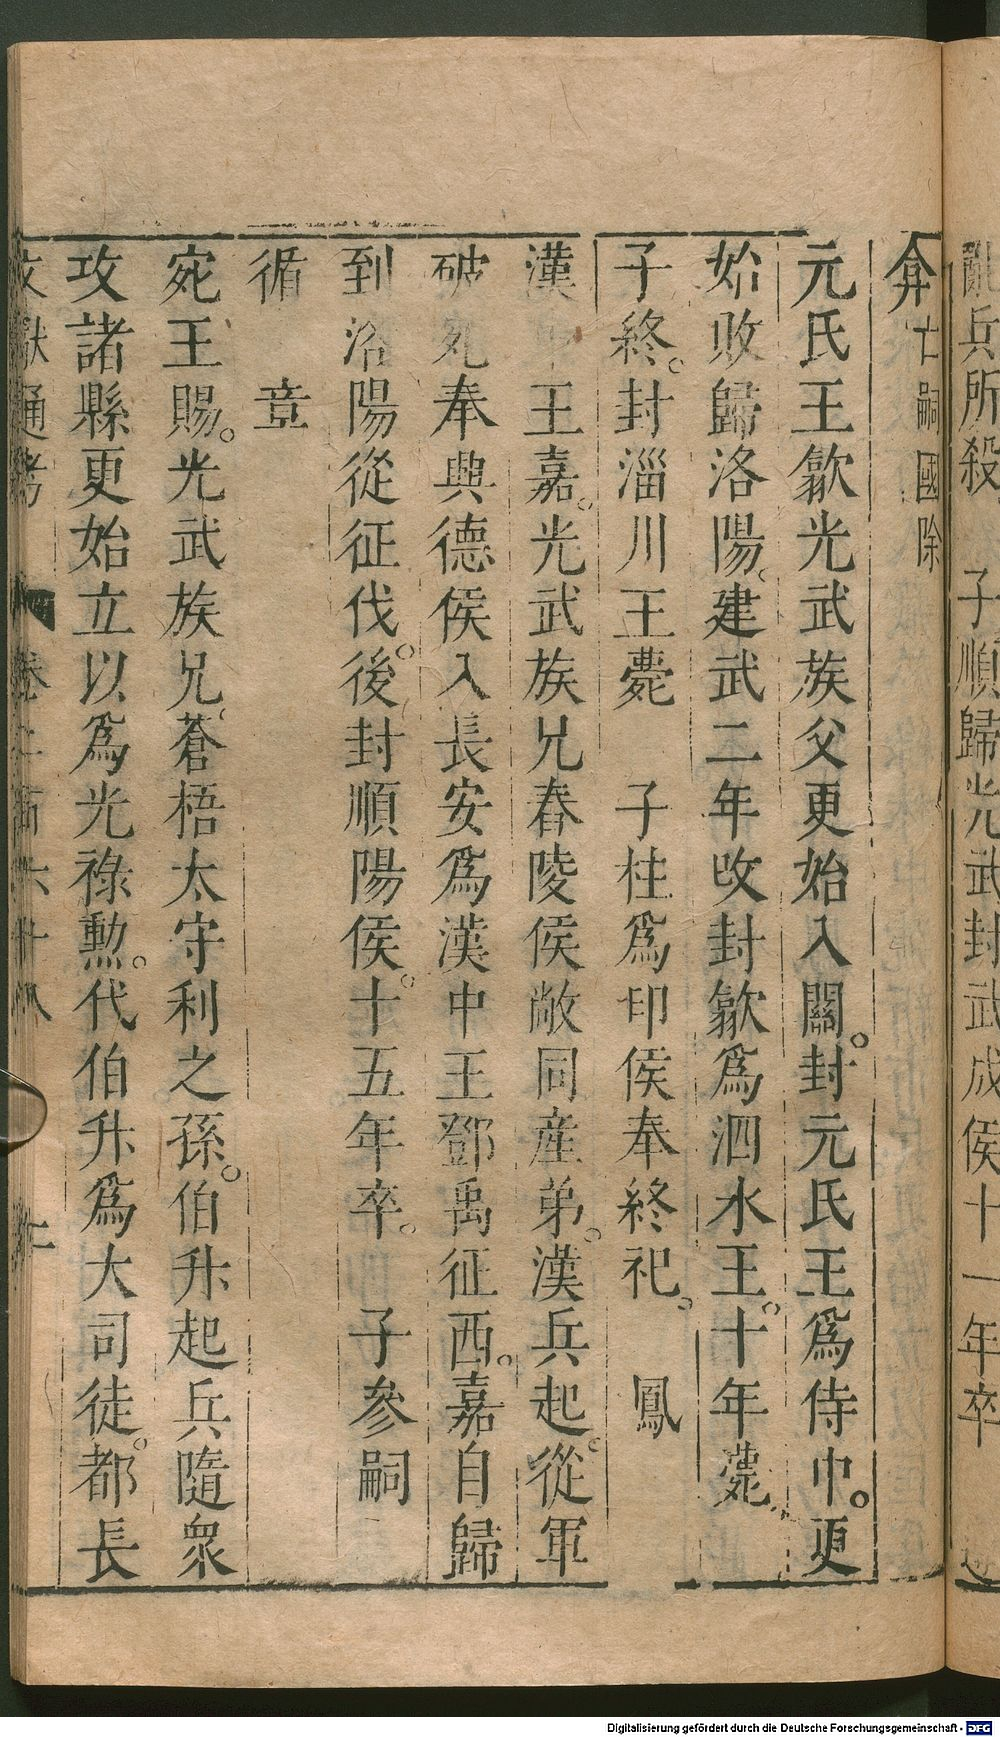 亂兵所殺　子順歸光武封武成侯十一年卒
弇亡嗣國除
元氏王歙光武族父更始入關。封元氏王爲侍中。更
始敗歸洛陽。建武二年改封歙爲泗水王。十年薨。
子終。封淄川王薨　子柱爲卬侯奉終祀。　鳳
漢中王嘉。光武族兄舂陵侯敞同産弟。漢兵起。從軍
破宛奉興德侯入長安爲漢中王鄧禹征西。嘉自歸
到洛陽從征伐。後封順陽侯。十五年卒。　子參嗣
循　章
宛王賜。光武族兄。蒼梧太守利之孫。伯升起兵隨衆
攻諸縣更始立以爲光祿勲。代伯升爲大司徒。都長
文獻通考　卷二百六十八
Digitalisierung gefördert durch die Deutsche Forschungsgemeinschaft - DFG